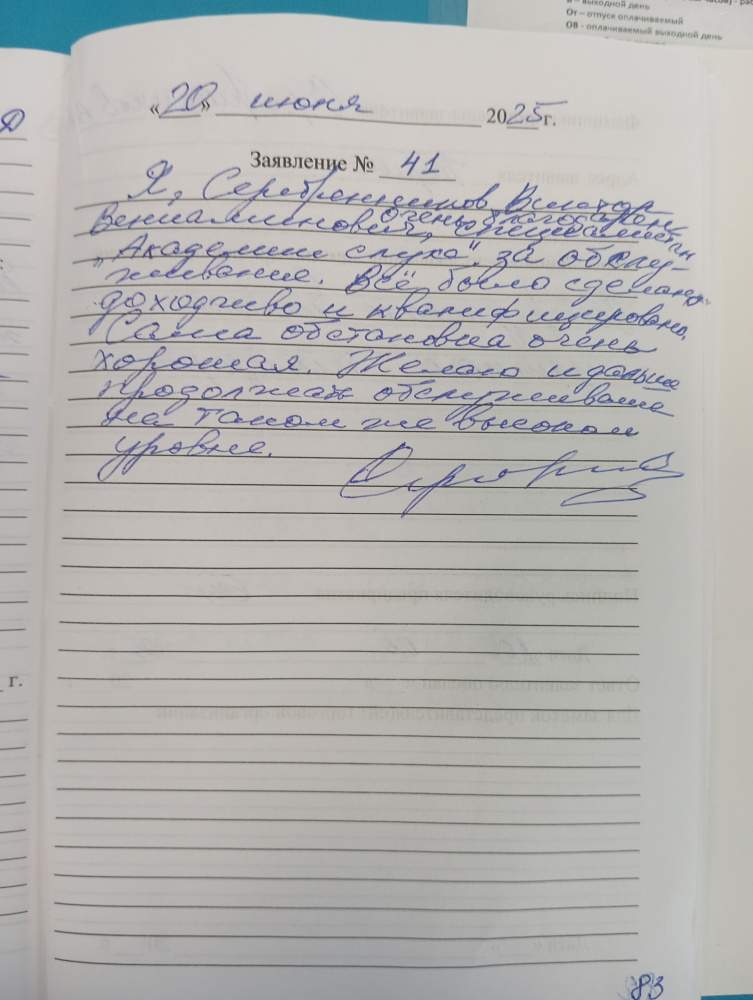 — выходной день
От – отпуск оплачиваемый
ОВ - оплачиваемый выходной день
«20» июня 2025 г.
Заявление № 41
Я, Серебренников Виктор
Вениаминович, очень благодарен
специалистам
„Академии слуха", за обслу-
живание. Всё было сделано
доходчиво и квалифицировано.
Сама обстановка очень
хорошая. Желаю и дальше
продолжать обслуживание
на таком же высоком
уровне.
г.
83